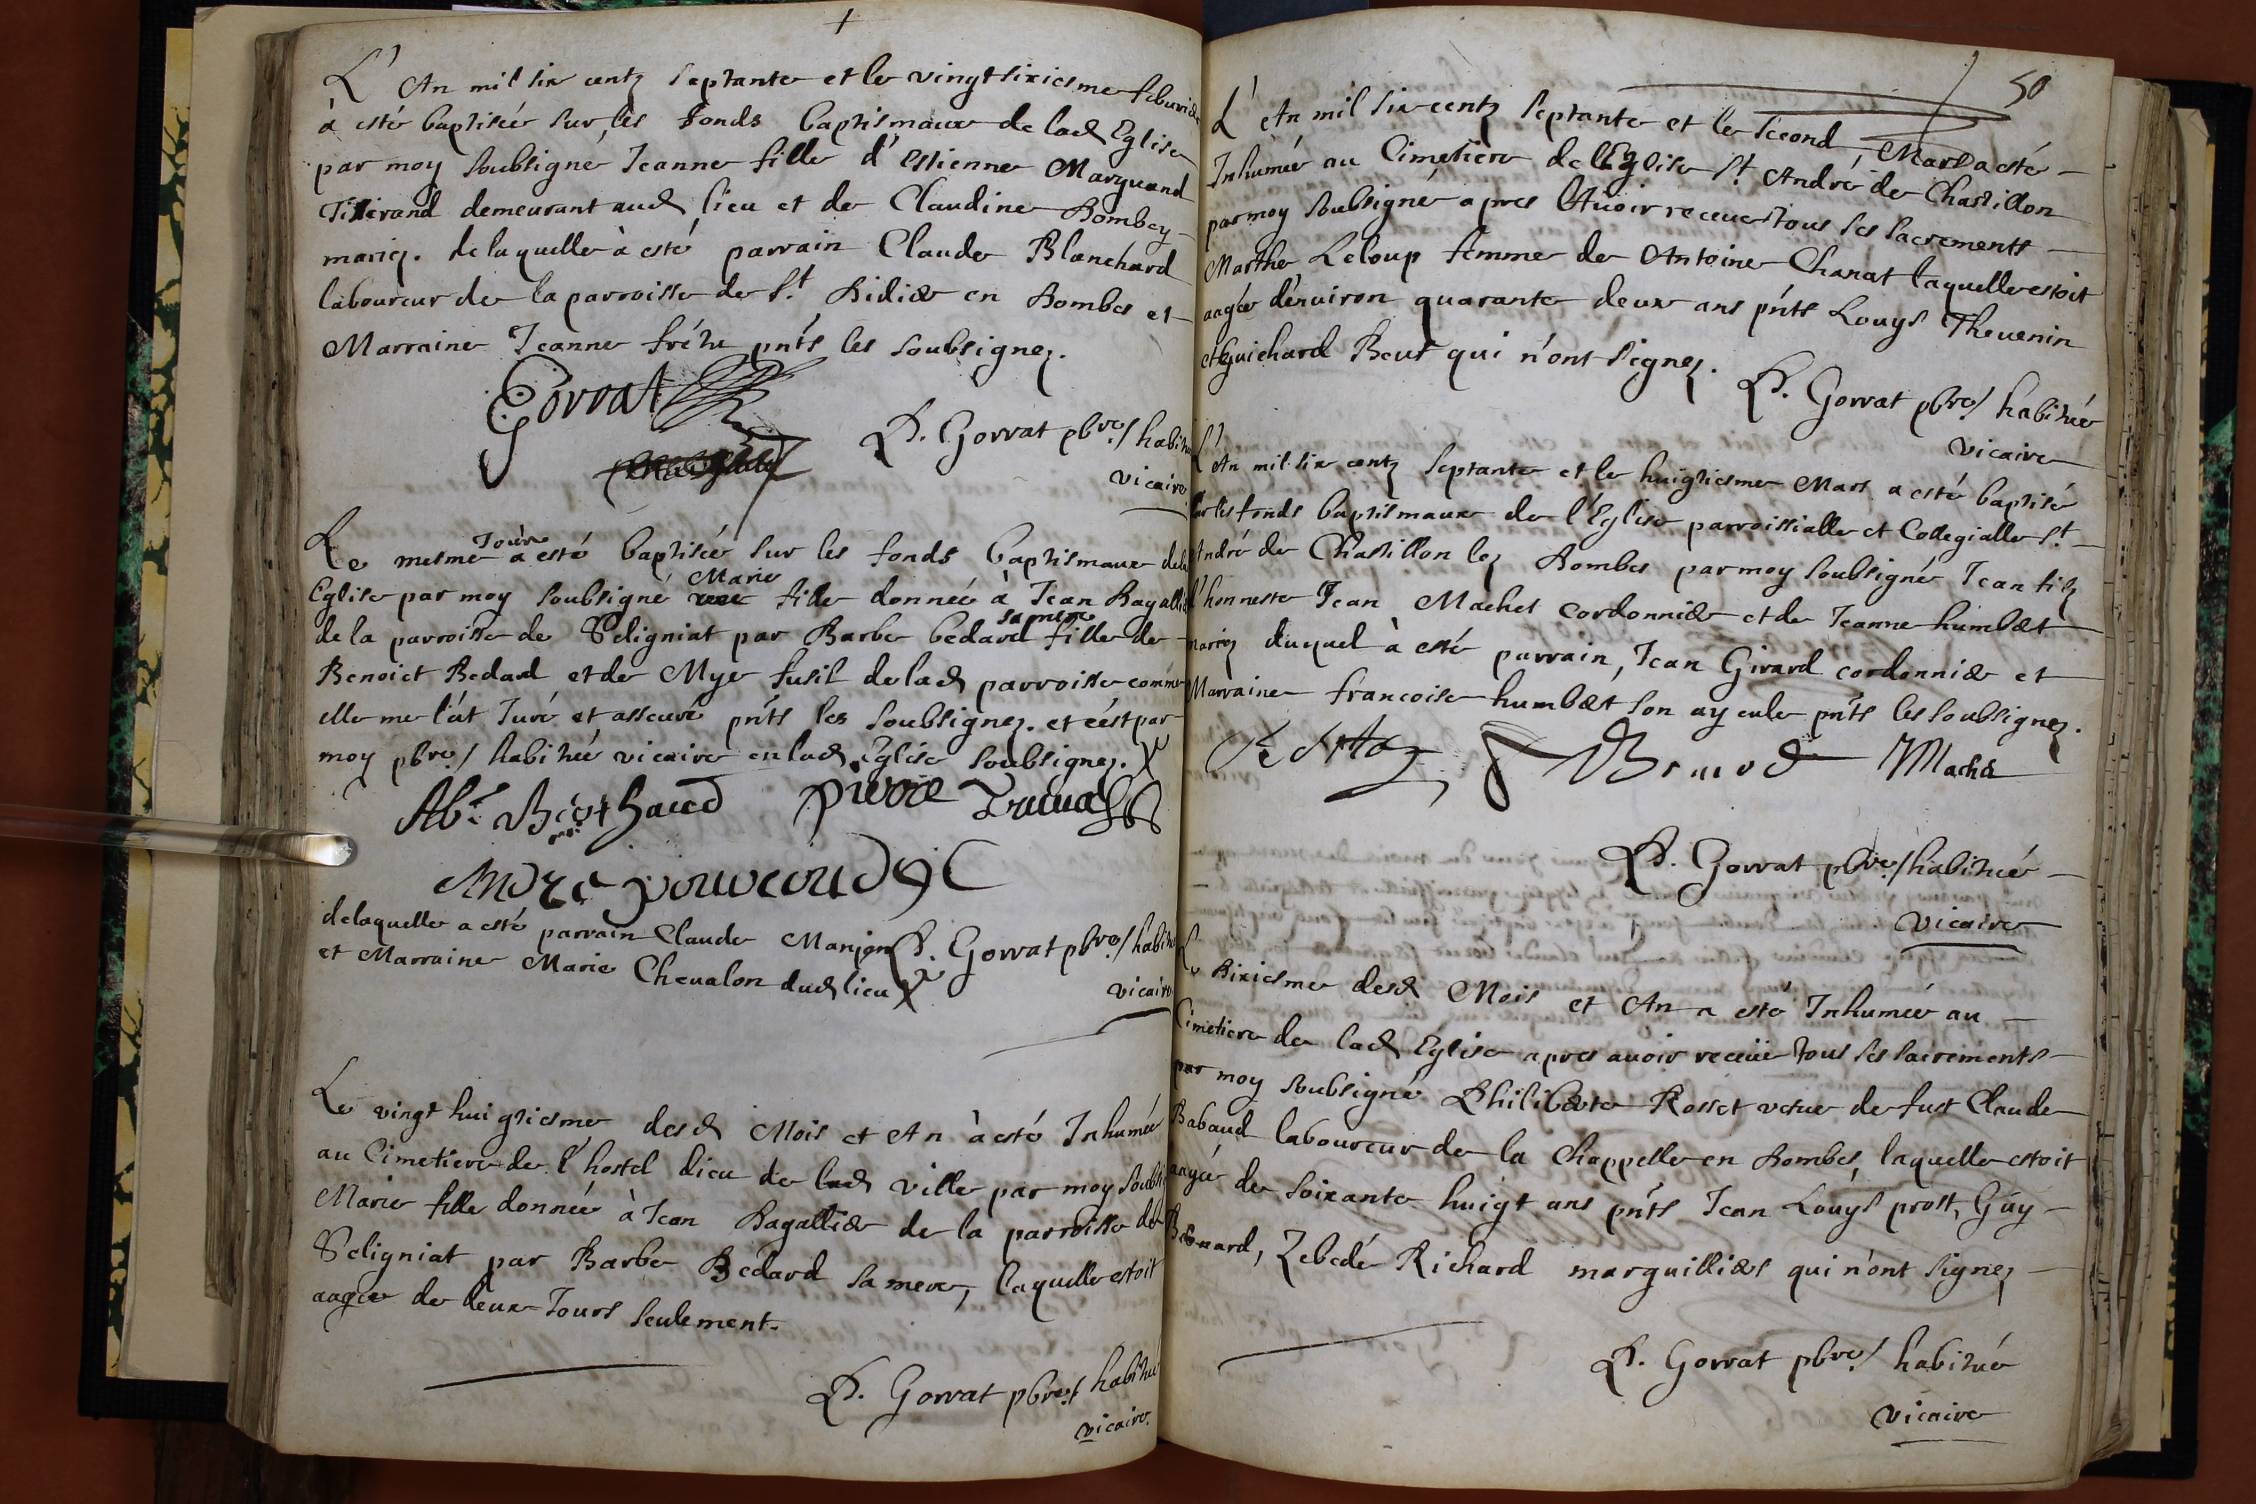 L'An mil six centz septante et le vingt sixiesme febvrier
à esté baptisée sur les fonds baptismaux de lad Eglise
par moy soubsigné Jeanne fille d'Estienne Marquand
Tisserand demeurant aud lieu et de Claudine Bombey
mariez. de laquelle à esté parrain Claude Blanchard
laboureur de la parroisse de St Didier en Dombes et
Marraine Jeanne frére pnts les soubsignez.
Gorrat
P. Gorrat pbre / habitué
vicaire
Le mesme Jour à esté baptisée sur les fonds baptismaux delad
Eglise par moy soubsigné Marie fille donnée à Jean Bagallier
de la parroisse de Seligniat par Barbe bedard sa mere fille de
Benoict Bedard et de Mye fusil delad parroisse comme
elle me l'át Juré et asseuré pnts les soubsignez. et c'est par
moy pbre / habitué vicaire en lad Eglise soubsignez. X
Abr Berthaud pierre
Andre
delaquelle a esté parrain Claude Manjon P. Gorrat pbre / habitué
et Marraine Marie Chevalon dud lieu X vicaire
Le vingt huigtiesme desd Mois et An à esté Inhumée
au Cimetiere de l'hostel dieu de lad ville par moy soubsig
Marie fille donnée à Jean Bagallier de la parroisse de
Seligniat par Barbe Bedard sa mere, laquelle estoit
aagée de deux Jours seulement.
P. Gorrat pbre / habitué
vicaire.
50
L'An mil six centz septante et le second Mars a esté
Inhumée au Cimetiere de l'Eglise St André de Chastillon
par moy soubsigné apres Avoir receu tous ses sacrements
Marthe Leloup femme de Antoine Chanat laquelle estoit
aagée d'environ quarante deux ans pnts Louys Thevenin
et Guichard Beuf qui n'ont signez.
P. Gorrat pbre / habitué
vicaire
L'An mil six centz septante et le huigtiesme Mars a esté baptisé
sur les fonds baptismaux de l'Eglise parroissialle et Collegialle St
André de Chastillon lez Dombes par moy soubsigné Jean filz
d'honneste Jean Machet cordonnier et de Jeanne humbert
mariez duquel à esté parrain, Jean Girard cordonnier et
Marraine francoise humbert son ayeule pnts les soubsignez.
Machet
P. Gorrat pbre / habitué
vicaire
Le dixiesme desd Mois et An a esté Inhumée au
Cimetiere de lad Eglise apres avoir receüe tous ses sacrements
par moy soubsigné Philiberte Rosset vefue de fust Claude
Babaud laboureur de la Chappelle en Dombes, laquelle estoit
aagée de soixante huigt ans pnts Jean Loüys prost, Guy
Bernard, Zebedé Richard marguilliers qui n'ont signez
P. Gorrat pbre / habitué
vicaire